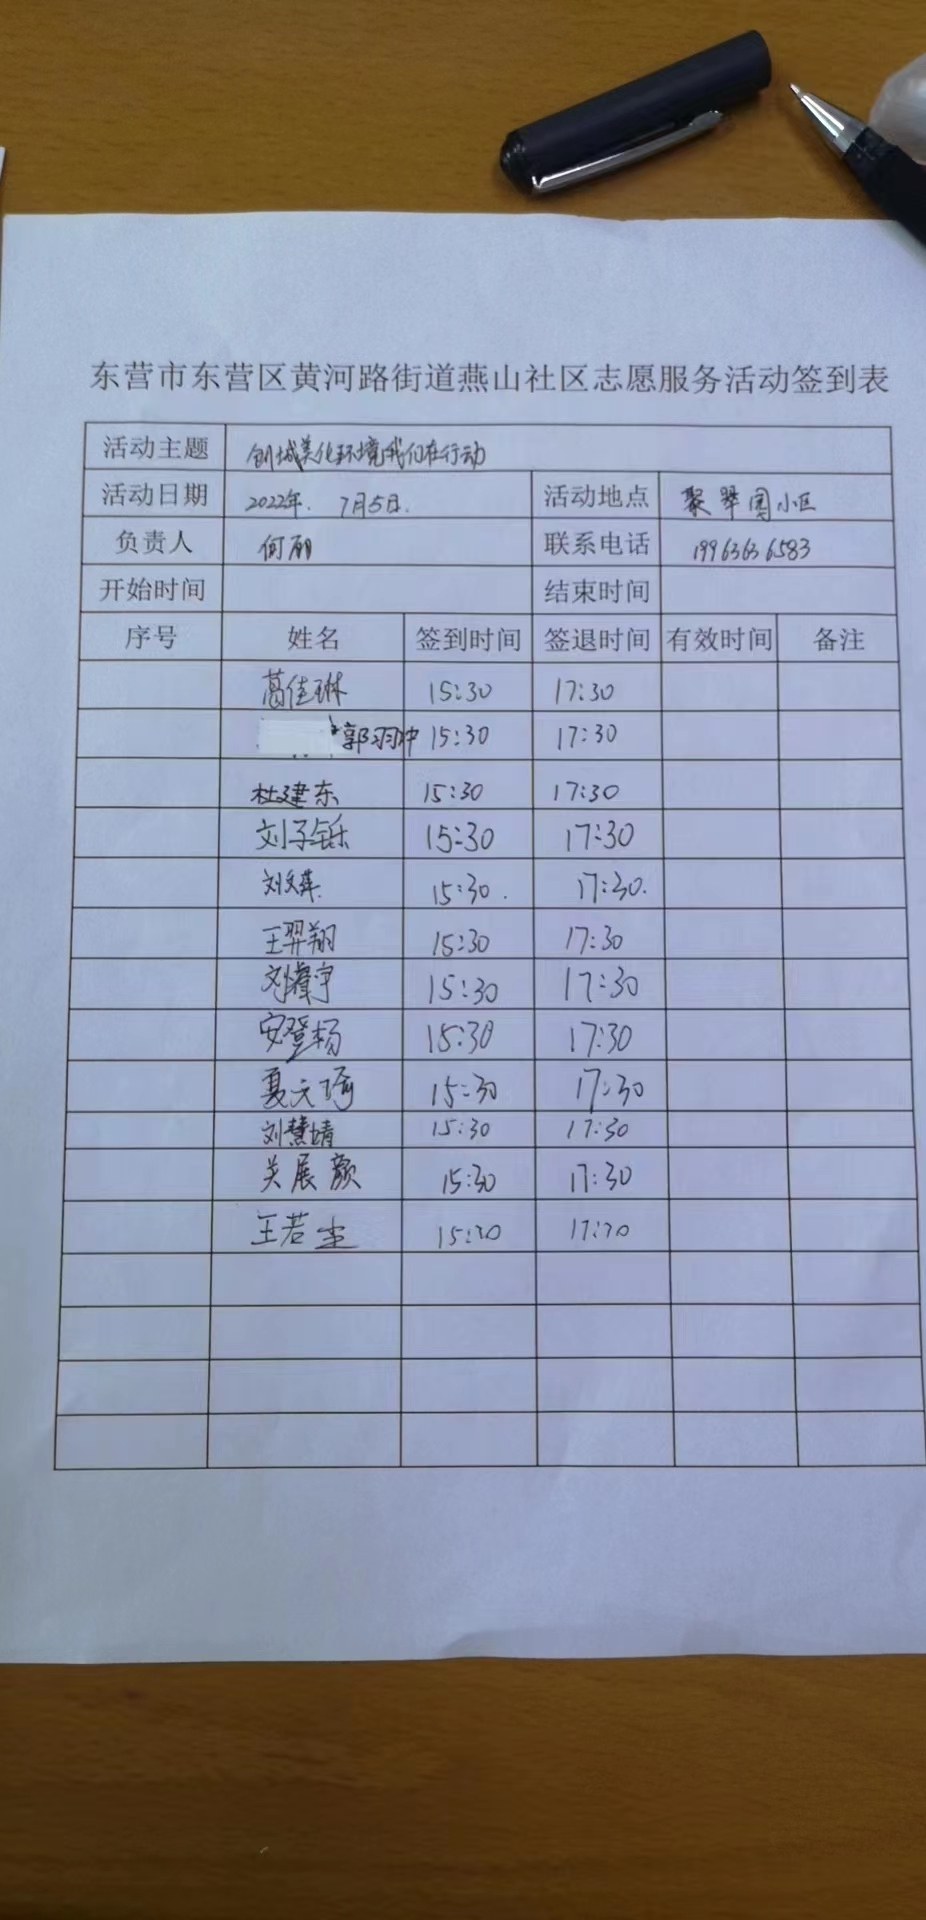 东营市东营区黄河路街道燕山社区志愿服务活动签到表
活动主题 创城美化环境我们在行动
活动日期 2022年. 7月5日. 活动地点 聚翠园小区
负责人 何丽 联系电话 19963636583
开始时间 结束时间
序号 姓名 签到时间 签退时间 有效时间 备注
葛佳琳 15:30 17:30
郭羽冲 15:30 17:30
杜建东 15:30 17:30
刘子铄 15:30 17:30
刘文萍 15:30. 17:30.
王羿翔 15:30 17:30
刘睿宇 15:30 17:30
安登杨 15:30 17:30
夏文琦 15:30 17:30
刘慧婧 15:30 17:30
关展颜 15:30 17:30
王若尘 15:30 17:30